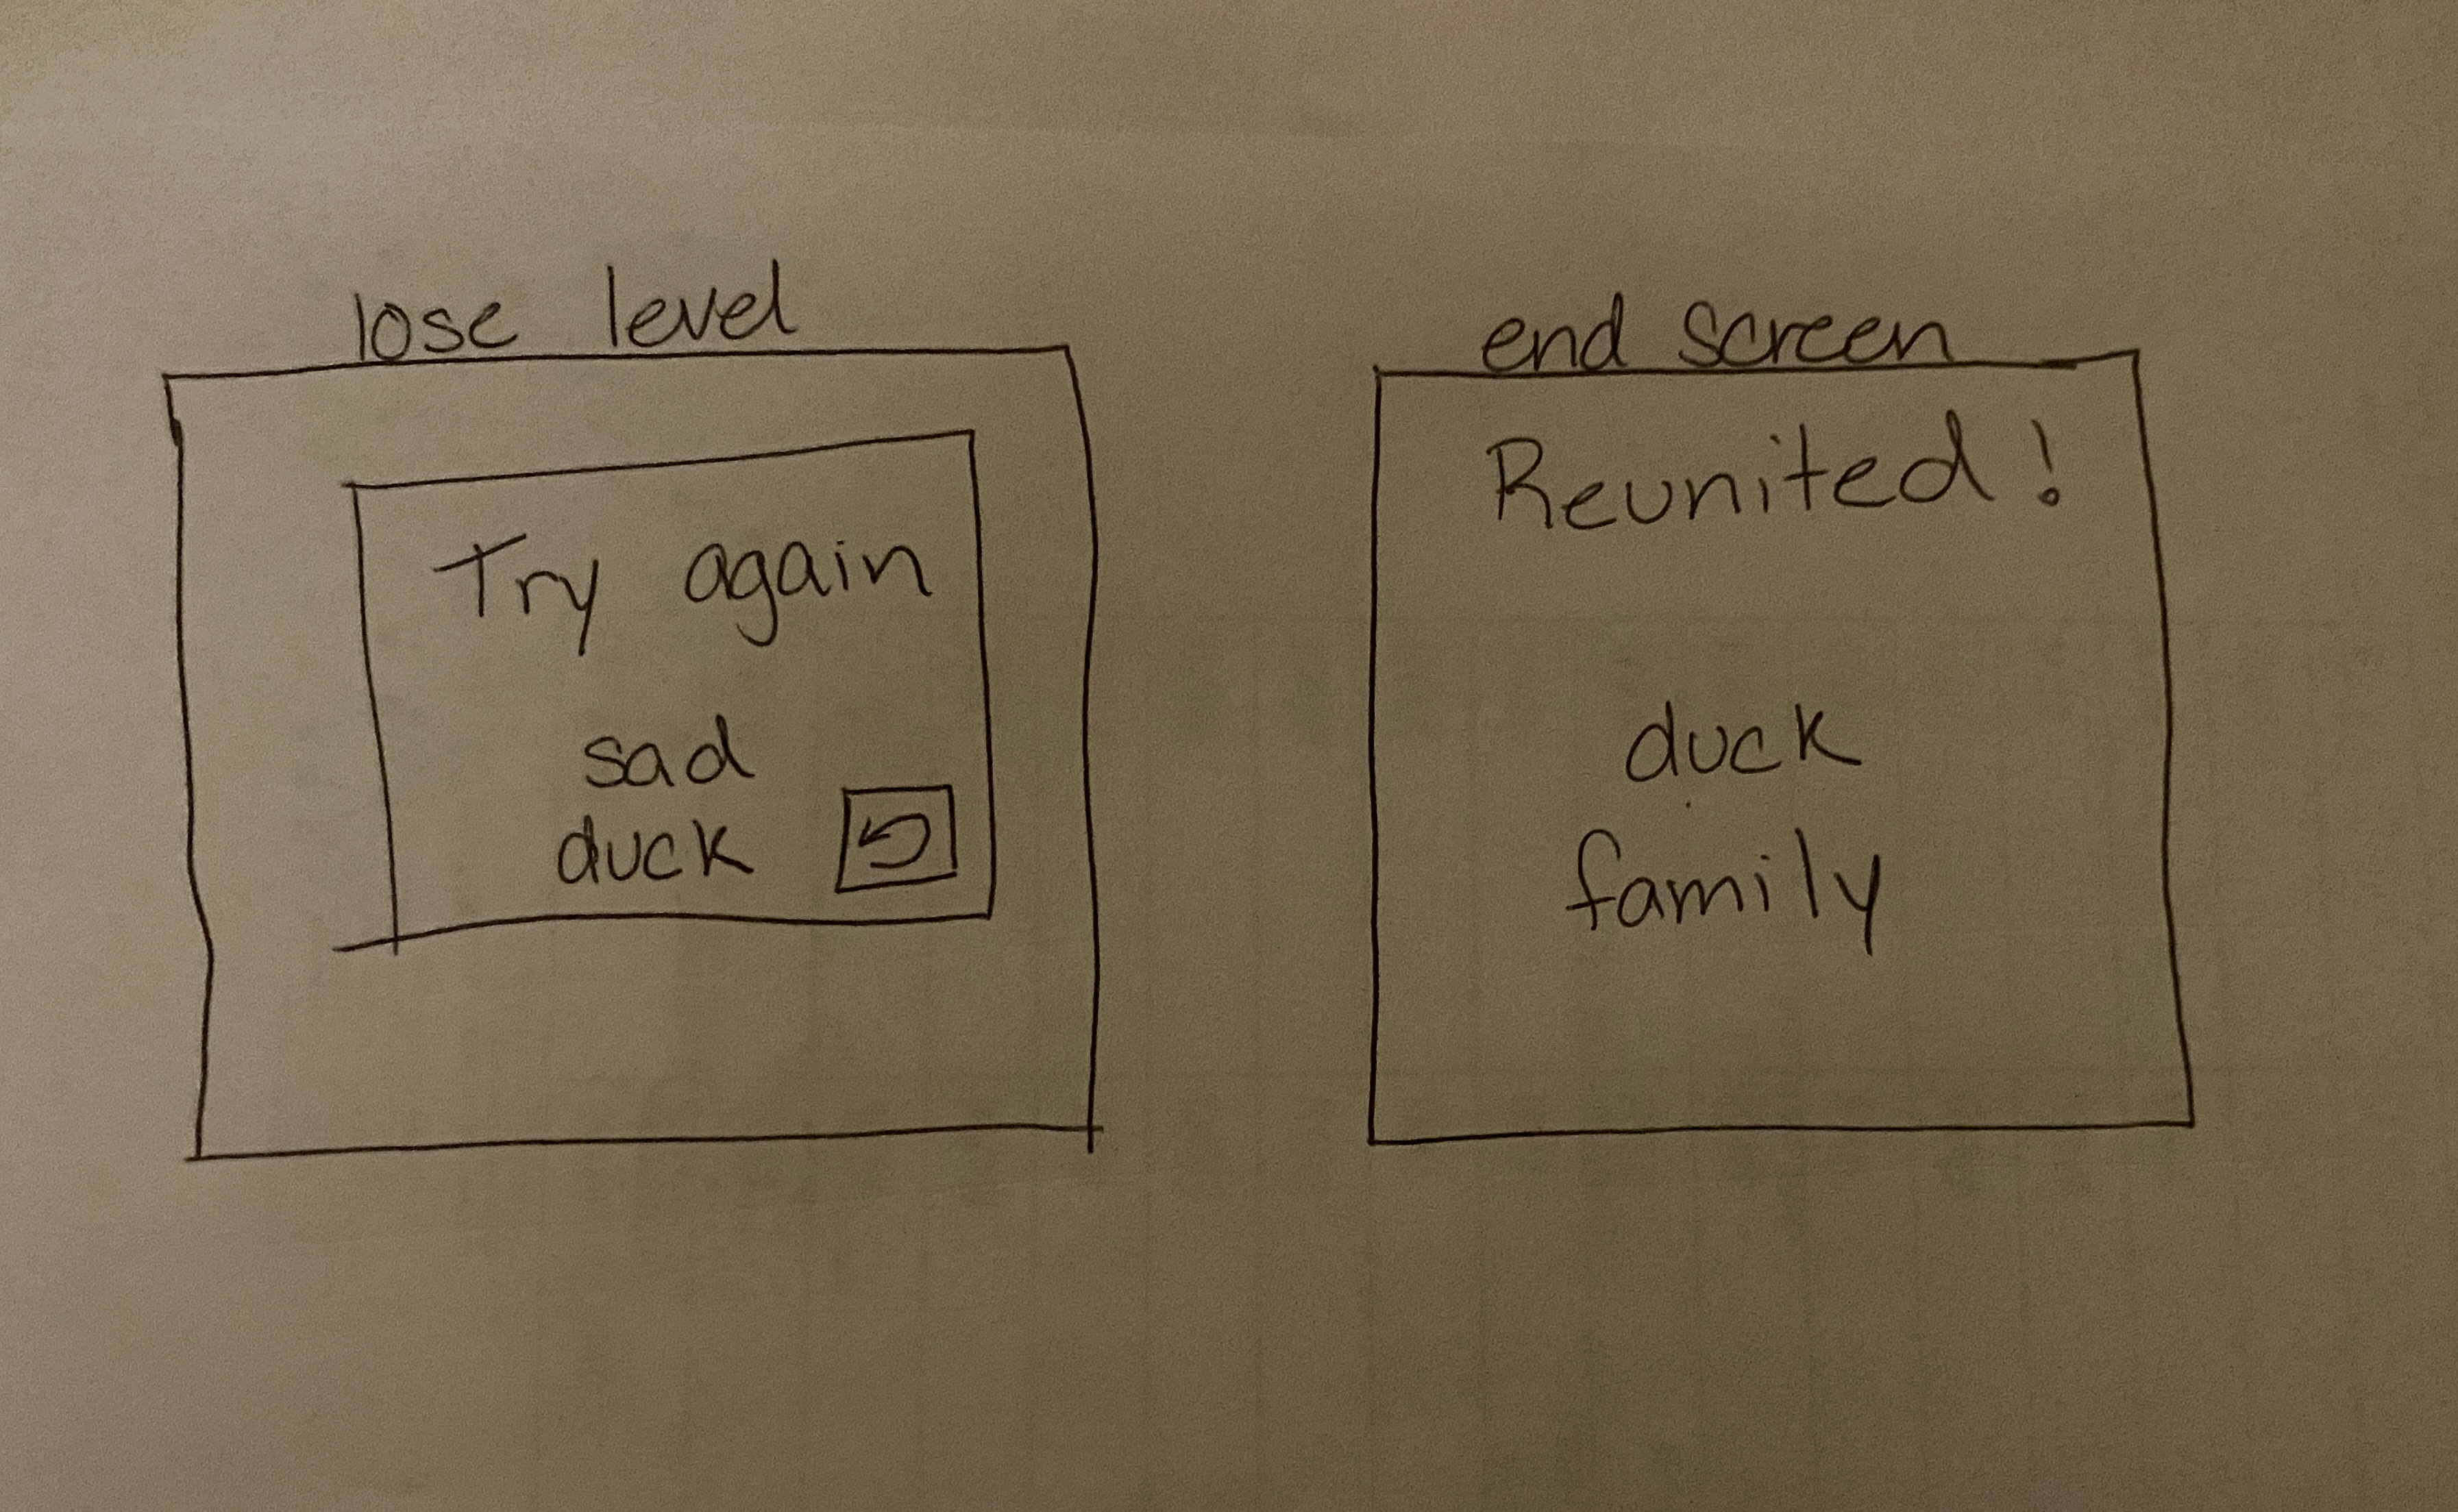 lose level
Try again
sad
duck
end screen
Reunited!
duck
family